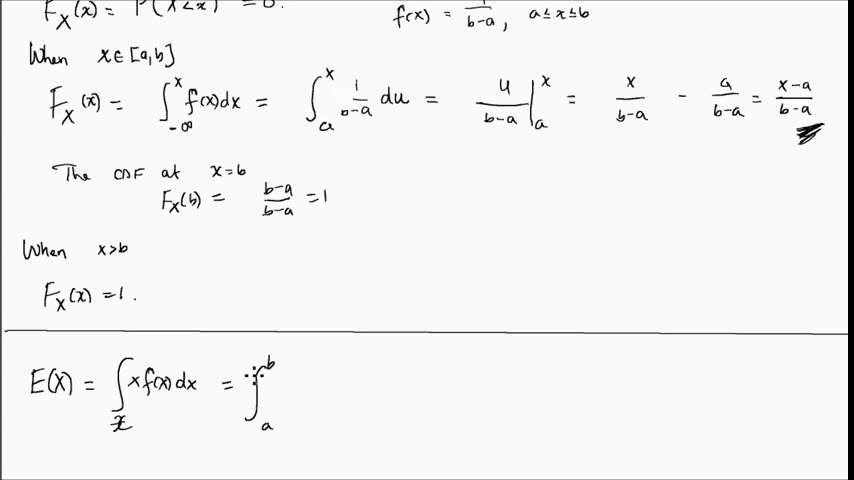 F_X(x) = P(X<x) = 0. f(x) = 1/(b-a), a≤x≤b
When x∈[a,b]
F_X(x) = ∫_{-∞}^{x} f(x)dx = ∫_{a}^{x} 1/(b-a) du = u/(b-a) |_{a}^{x} = x/(b-a) - a/(b-a) = (x-a)/(b-a)
The CDF at x=b
F_X(b) = (b-a)/(b-a) = 1
When x>b
F_X(x) = 1.
E(X) = ∫_{x} x f(x) dx = ∫_{a}^{b}